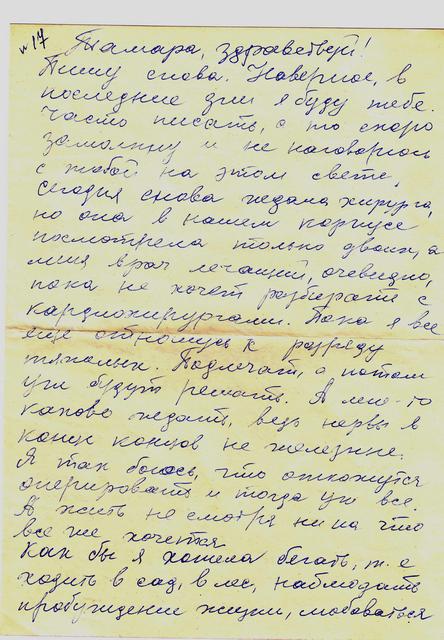 № 17
Тамара, здравствуй!
Пишу снова. Наверное, в
последние дни я буду тебе
часто писать, а то скоро
замолкну и не наговорюсь
с тобой на этом свете,
сегодня снова ждала хирурга,
но она в нашем корпусе
посмотрела только двоих, а
меня врач лечащий, очевидно,
пока не хочет разбирать с
кардиохирургами. Пока я все
еще отношусь к разряду
тяжелых. Подлечат, а потом
уж будут решать. А мне-то
каково ждать, ведь нервы в
конце концов не железные.
Я так боюсь, что откажутся
оперировать и тогда уж все.
А жить не смотря ни на что
все же хочется
Как бы я хотела бегать, т.е
ходить в сад, в лес, наблюдать
пробуждение жизни, любоваться